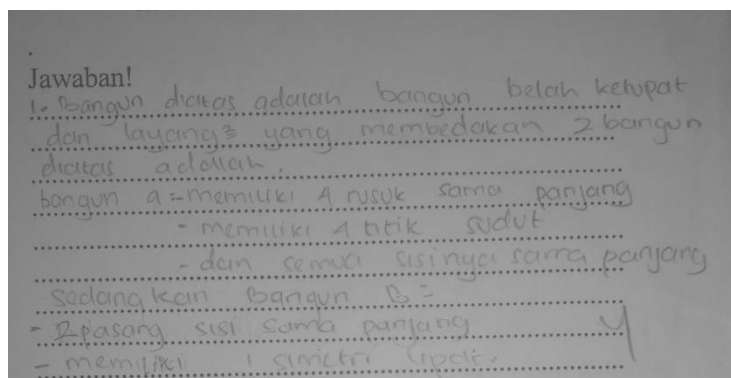 Jawaban!
1. Bangun diatas adalah bangun belah ketupat
dan layang² yang membedakan 2 bangun
diatas adalah.
bangun a = - memiliki 4 rusuk sama panjang
- memiliki 4 titik sudut
- dan semua sisinya sama panjang
sedangkan Bangun B =
- 2 pasang sisi sama panjang
- memiliki 1 simetri lipat.